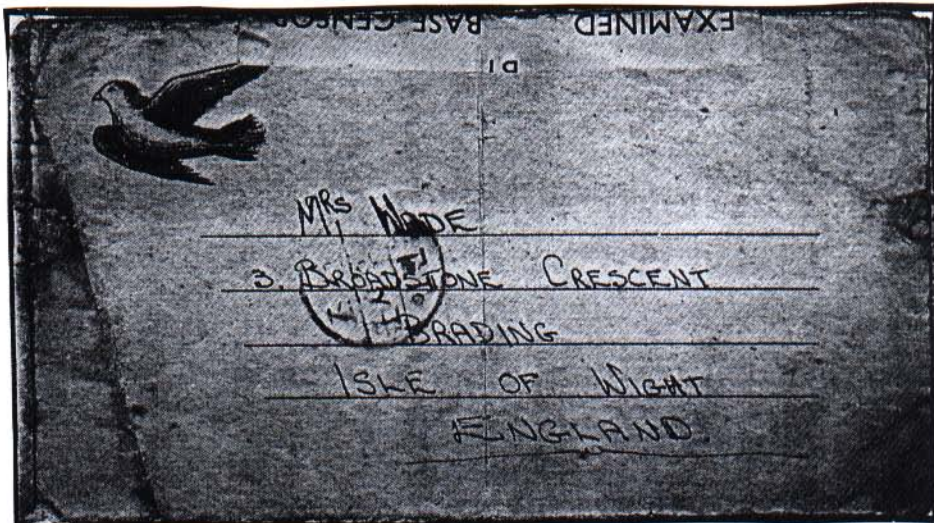 EXAMINED BASE CENSOR
D1
MRS WADE
3. BROADSTONE CRESCENT
BRADING
ISLE OF WIGHT
ENGLAND.